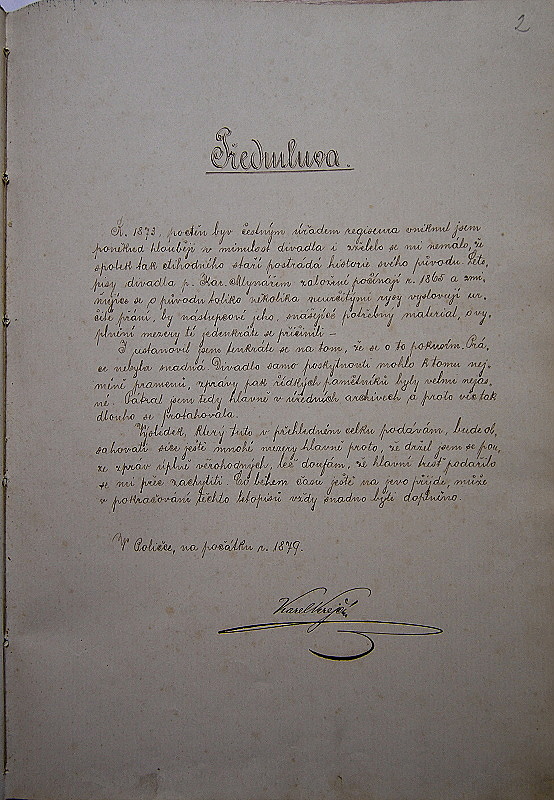 2
Předmluva.
R. 1873, poctěn byv čestným úřadem regiseura vniknul jsem
poněkud hlouběji v minulost divadla i zželelo se mi nemálo, že
spolek tak ctihodného stáří postrádá historie svého původu. Leto,
pisy divadla p. Kar. Mlynářem založené počínají r. 1865 a zmi,
ňujíce se o původu toliko několika neurčitými rysy vyslovují ur,
čité přání, by nástupcové jeho, snášejíce potřebný materiál, o vy,
plnění mezery té jedenkráte se přičinili –
I ustanovil jsem tenkráte se na tom, že se o to pokusím. Prá,
ce nebyla snadná. Divadlo samo poskytnouti mohlo k tomu nej,
méně pramenů, zprávy pak řídkých pamětníků byly velmi nejas,
né. Pátral jsem tedy hlavně v úředních archivech a proto věc tak
dlouho se protahovala.
Výsledek, který tuto v přehledném celku podávám, bude ob,
sahovati sice ještě mnohé mezery hlavně proto, že držel jsem se pou,
ze zpráv úplně věrohodných, leč doufám, že hlavní tresť podařilo
se mi přec zachytiti. Co během času ještě na jevo přijde, může
v pokračování těchto letopisů vždy snadno býti doplněno.
V Poličce, na počátku r. 1879.
Karel